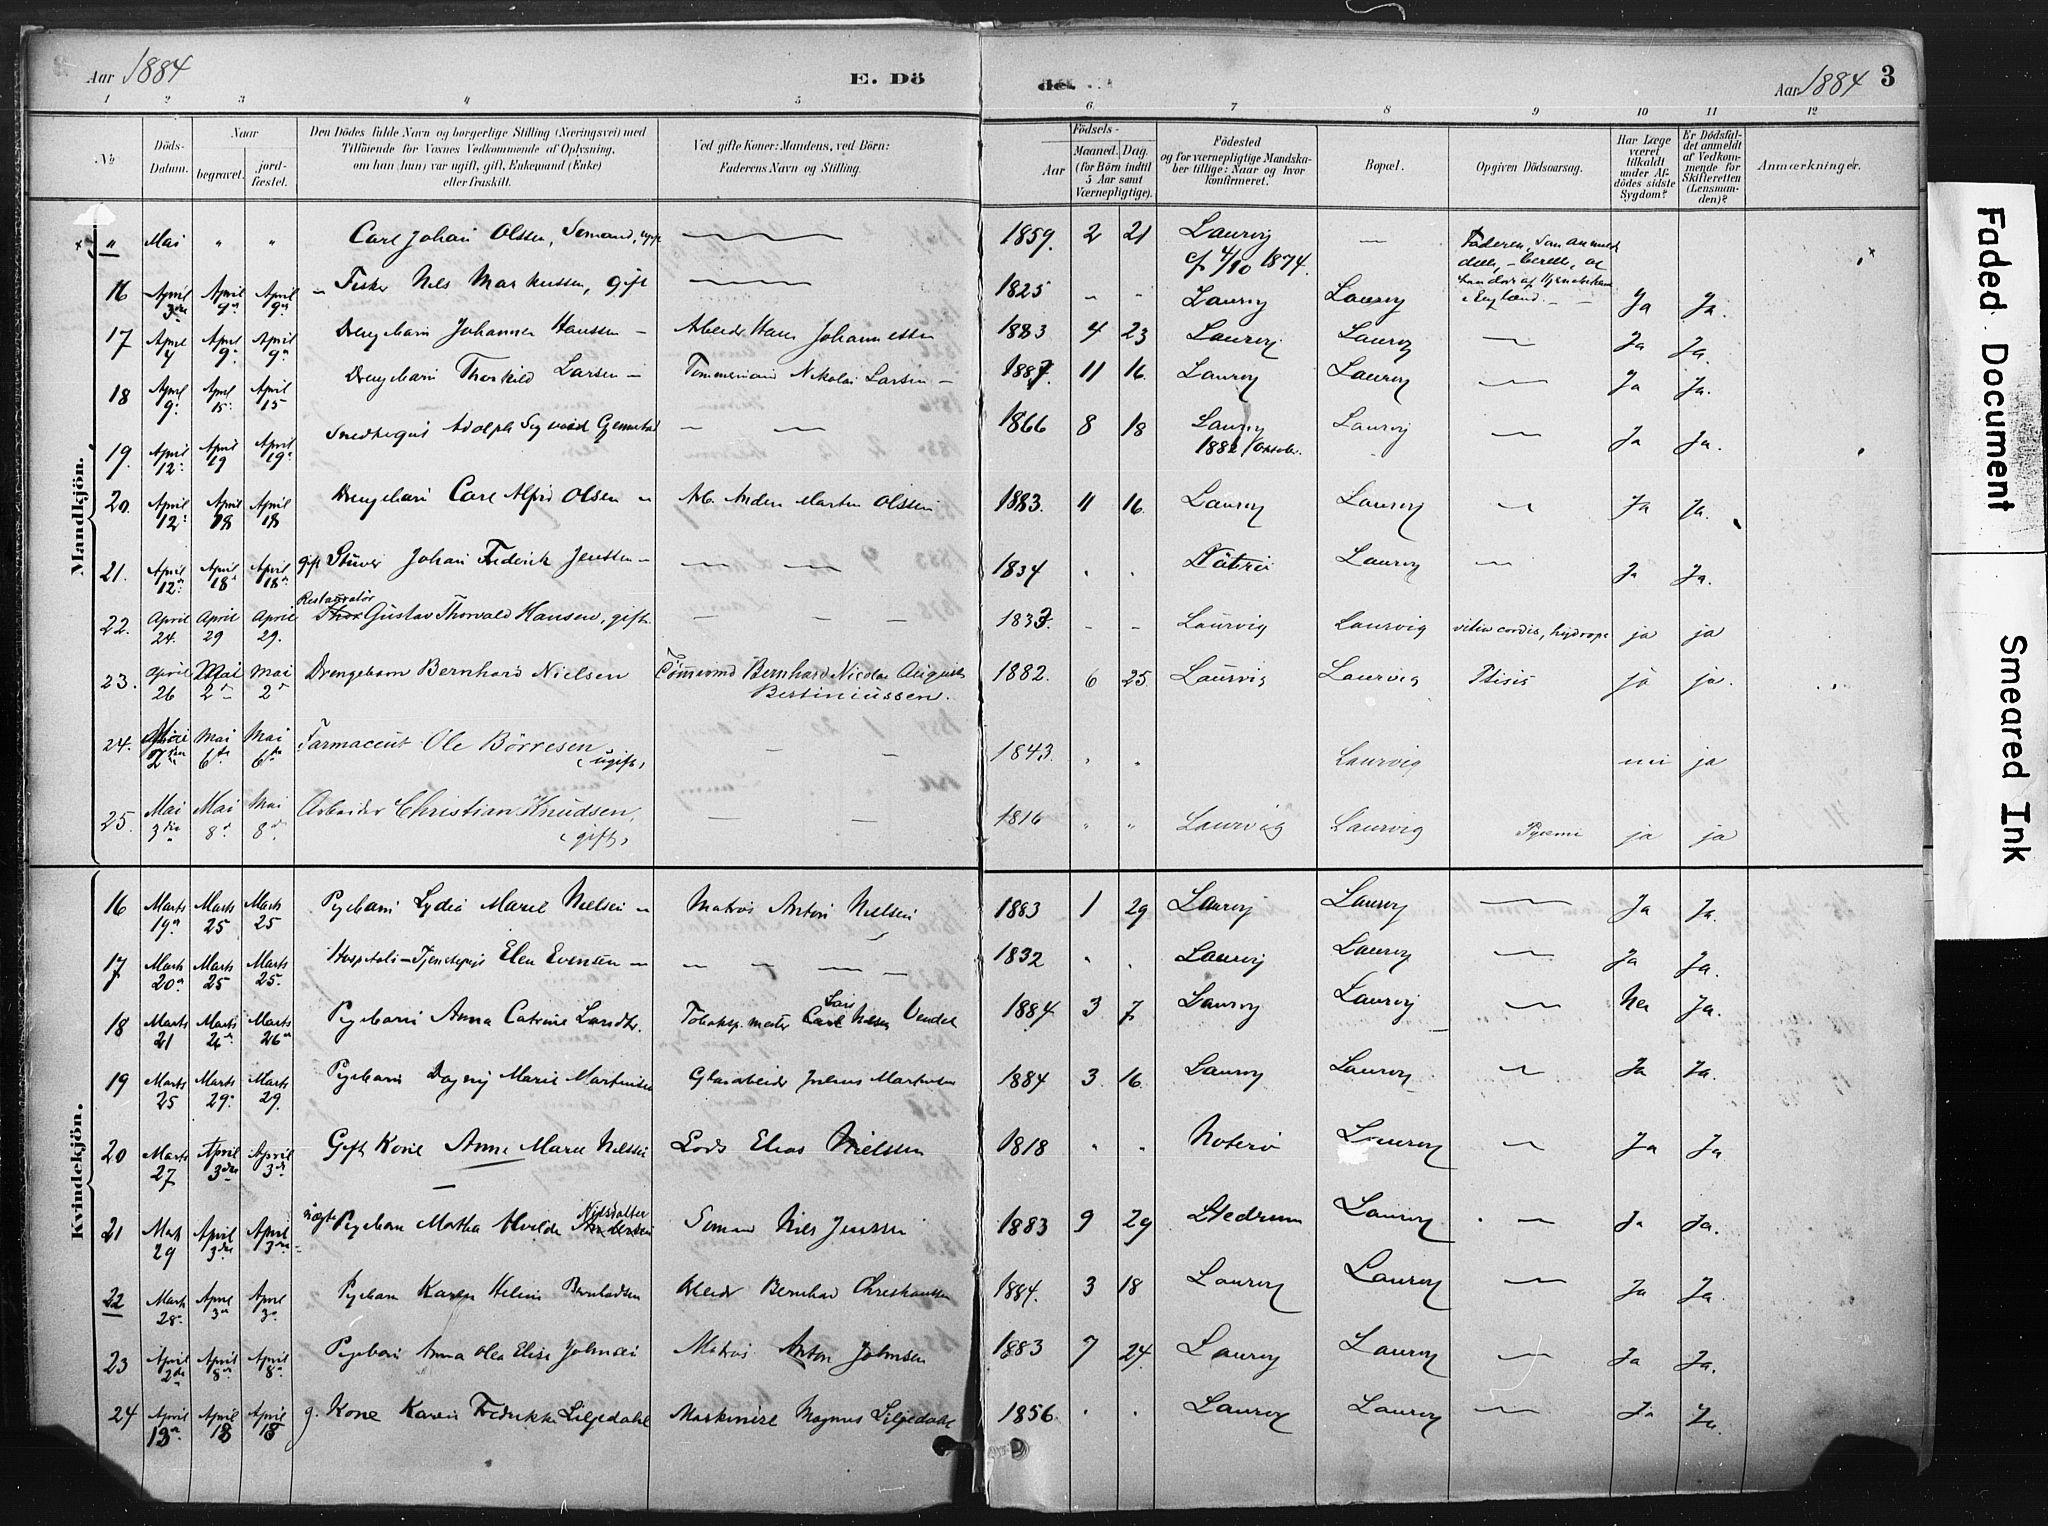 Aar 1884
E. Dö
de.
Aar 1884 3
1 2 3 4 5 6 7 8 9 10 11 12
No
Döds-Datum.
Naar
begravet.
jordfæstet.
Den Dödes fulde Navn og borgerlige Stilling (Næringsvei) med
Tilföiende for Voxnes Vedkommende af Oplysning,
om han (hun) var ugift, gift, Enkemand (Enke)
eller fraskilt.
Ved gifte Koner: Mandens, ved Börn:
Faderens Navn og Stilling.
Födsels-
Aar
Maaned. Dag.
(for Börn indtil
5 Aar samt
Værnepligtige).
Födested
og for værnepligtige Mandska-
ber tillige: Naar og hvor
konfirmeret.
Bopæl.
Opgiven Dödsaarsag.
Har Læge
været
tilkaldt
under Af-
dödes sidste
Sygdom?
Er Dödsfal-
det anmeldt
af Vedkom-
mende for
Skifteretten
(Lensman-
den)?
Anmærkninger.
Mandkjön.
" Mai " " Carl Johan Olssen, Sömand, ugift 1859. 2 21 Laurvig —
cf 4/10 1874.
16 April 3die April 9de April 9de Fisker Nils Markussen, gift 1825 - - Laurvig Laurvig Ja Ja.
17 April 4 April 9 April 9 Drengebarn Johannes Hansen — Arbeider Hans Johannessen 1883 4 23 Laurvig Laurvig — Ja Ja.
18 April 9. April 15. April 15 Drengebarn Thorkild Larsen — Tømmermand Nikolai Larsen — 1887. 11 16. Laurvig Laurvig — Ja Ja.
19. April 12. April 19 April 19. Adolph Sigvard — — 1866 8 18 Laurvig Laurvig — Ja Ja.
20. April 12. April 18 April 18 Drengebarn Carl Alfred Olsen — Arb. Anders Martin Olssen 1883. 11 16. Laurvig Laurvig — Ja Ja.
21. April 12. April 18 April 18 gift Stuver Johan Frederik Jenssen — — 1834 . . Nøtterø Laurvig — Ja Ja.
22. April 24. April 29 April 29. Restauratør Gustav Thorvald Hansen, gift. — — — 1833. - - Laurvig Laurvig vitium cordis, hydrops ja ja
23. April 26 Mai 2 Mai 2 Drengebarn Bernhard Nielsen Tømmermd Bernhard Nicolai August
Bertiniussen. 1882. 6 25. Laurvig Laurvig Ptisis ja ja.
24. Mai 2den Mai 6te Mai 6te Farmaceut Ole Börresen
(ugift) — — 1843. " " Laurvig nei ja
25. Mai 3die Mai 8. Mai 8. Arbeider Christian Knudsen,
(gift) — — 1816 " " Laurvig Laurvig Pyæmi ja ja
Kvindekjön.
16 Marts 19 Marts 25 Marts 25 Pigebarn Lydia Marie Nielsen — Matros Anton Nielsen 1883 1 29 Laurvig Laurvig — Ja Ja.
17 Marts 20 Marts 25 Marts 25. Hospitals-Tjenestepige Elen Evensen — — — 1832 . . Laurvig Laurvig — Ja Ja.
18 Marts 21 Marts 26 Marts 26 Pigebarn Anna Catrine Tobaksp.mester Lars Vendel 1884 3 7 Laurvig Laurvig — Nei Ja.
19 Marts 25 Marts 29. Marts 29. Pigebarn Dagny Marie Martinsen Glasarbeider Julius Martinsen 1884 3. 16. Laurvig Laurvig — Ja Ja.
20 Marts 27 April 3die April 3die Gift Kone Anne Marie Nielsen Lods Elias Nielsen 1818 . . Noterø Laurvig — Ja Ja
21 Marts 29 April 3die April 3die uægte Pigebarn Martha Alvilde Sømand Nils Jenssen 1883 9 29 Hedrum Laurvig — Ja Ja.
22 Marts 28. April 3 April 3. Pigebarn Karen Heline Berntsen Arbeider Bernhard Christiansen 1884. 3 18 Laurvig Laurvig — Ja Ja.
23 April 2den April 8 April 8. Pigebarn Anna Olea Elise Johnsen Matros Anton Johnsen 1883 7 24. Laurvig Laurvig — Ja Ja.
24 April 13 April 18 April 18 g. Kone Karen Fredrikke Liljedahl Maskinist Magnus Liljedahl 1856 . . Laurvig Laurvig — Ja Ja.
Faded Document Smeared Ink